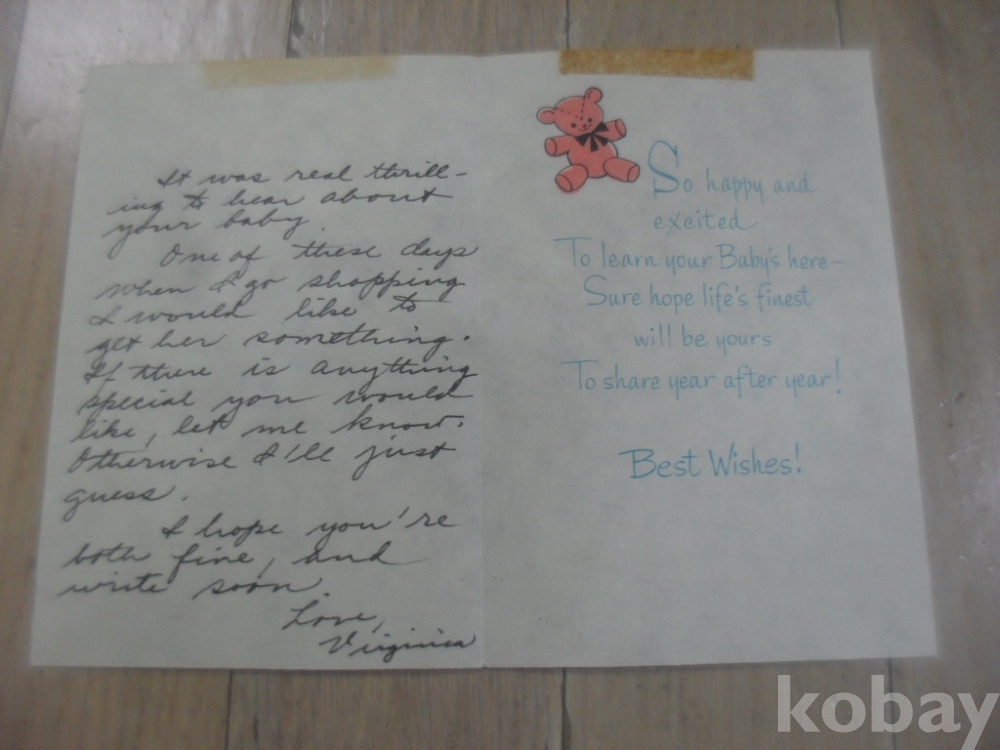 It was real thrill-
ing to hear about
your baby.
One of these days
when I go shopping
I would like to
get her something.
If there is anything
special you would
like, let me know.
Otherwise I'll just
guess.
I hope you're
both fine, and
write soon
Love,
Virginia
So happy and
excited
To learn your Baby's here—
Sure hope life's finest
will be yours
To share year after year!
Best Wishes!
kobay